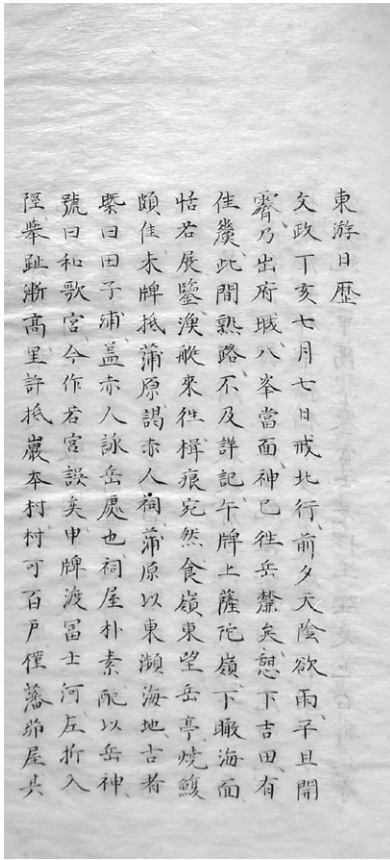 東游日歴
文政丁亥七月七日戒北行前夕天陰欲雨平旦開
霽乃出府城八峯當面神已徃岳麓矣憩下吉田有
佳羹此間熟路不及詳記午牌上薩陀嶺下瞰海面
恬若展鑒漁艇來徃楫痕宛然食嶺東望岳亭燒鰒
頗佳未牌抵蒲原謁赤人祠蒲原以東瀕海地古者
槩曰田子浦盖赤人詠岳處也祠屋朴素配以岳神
號曰和歌宮今作若宮誤矣申牌渡冨士河左折入
陘擧趾漸高里許抵巖本村村可百戸僅藩茆屋其